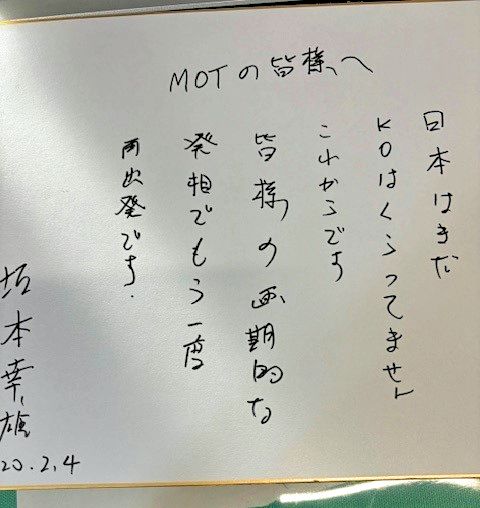 MOTの皆様へ
日本はまだ
KOはくらってません
これからです
皆様の画期的な
発相でもう一度
再出発です.
坂本幸雄
20.2.4